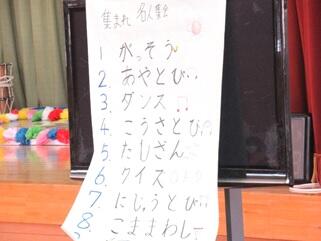 集まれ 名人集会
1 がっそう
2. あやとび
3. ダンス
4. こうさとび
5. たしざん
6. クイズ
7. にじゅうとび
8. こままわし